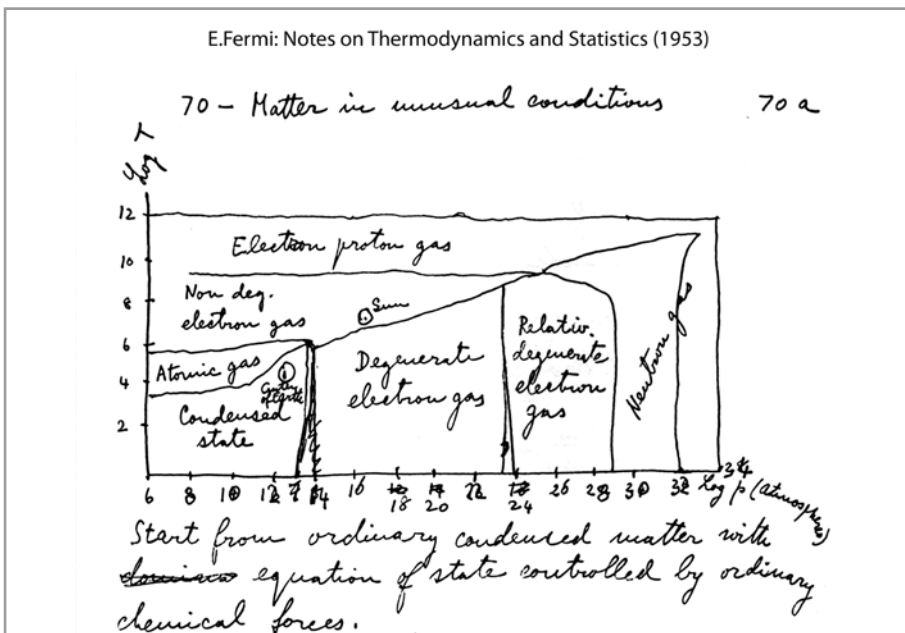 E.Fermi: Notes on Thermodynamics and Statistics (1953)
70 - Matter in unusual conditions 70 a
Log T
12
Electron proton gas
10
Non deg.
electron gas
8
Sun
6
Atomic gas
4
Condensed
state
2
Degenerate
electron gas
Relativ.
degenerate
electron
gas
Neutron gas
6 8 10 12 14 16 18 20 22 24 26 28 30 32 34
Log p (atmospheres)
Start from ordinary condensed matter with
equation of state controlled by ordinary
chemical forces.